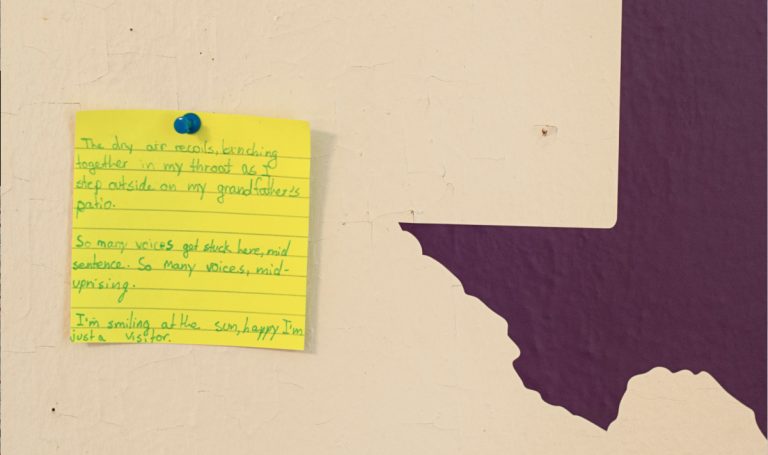 The dry air recoils, bunching
together in my throat as I
step outside on my grandfather's
patio.
So many voices get stuck here, mid
sentence. So many voices, mid-
uprising.
I'm smiling at the sun, happy I'm
just a visitor.